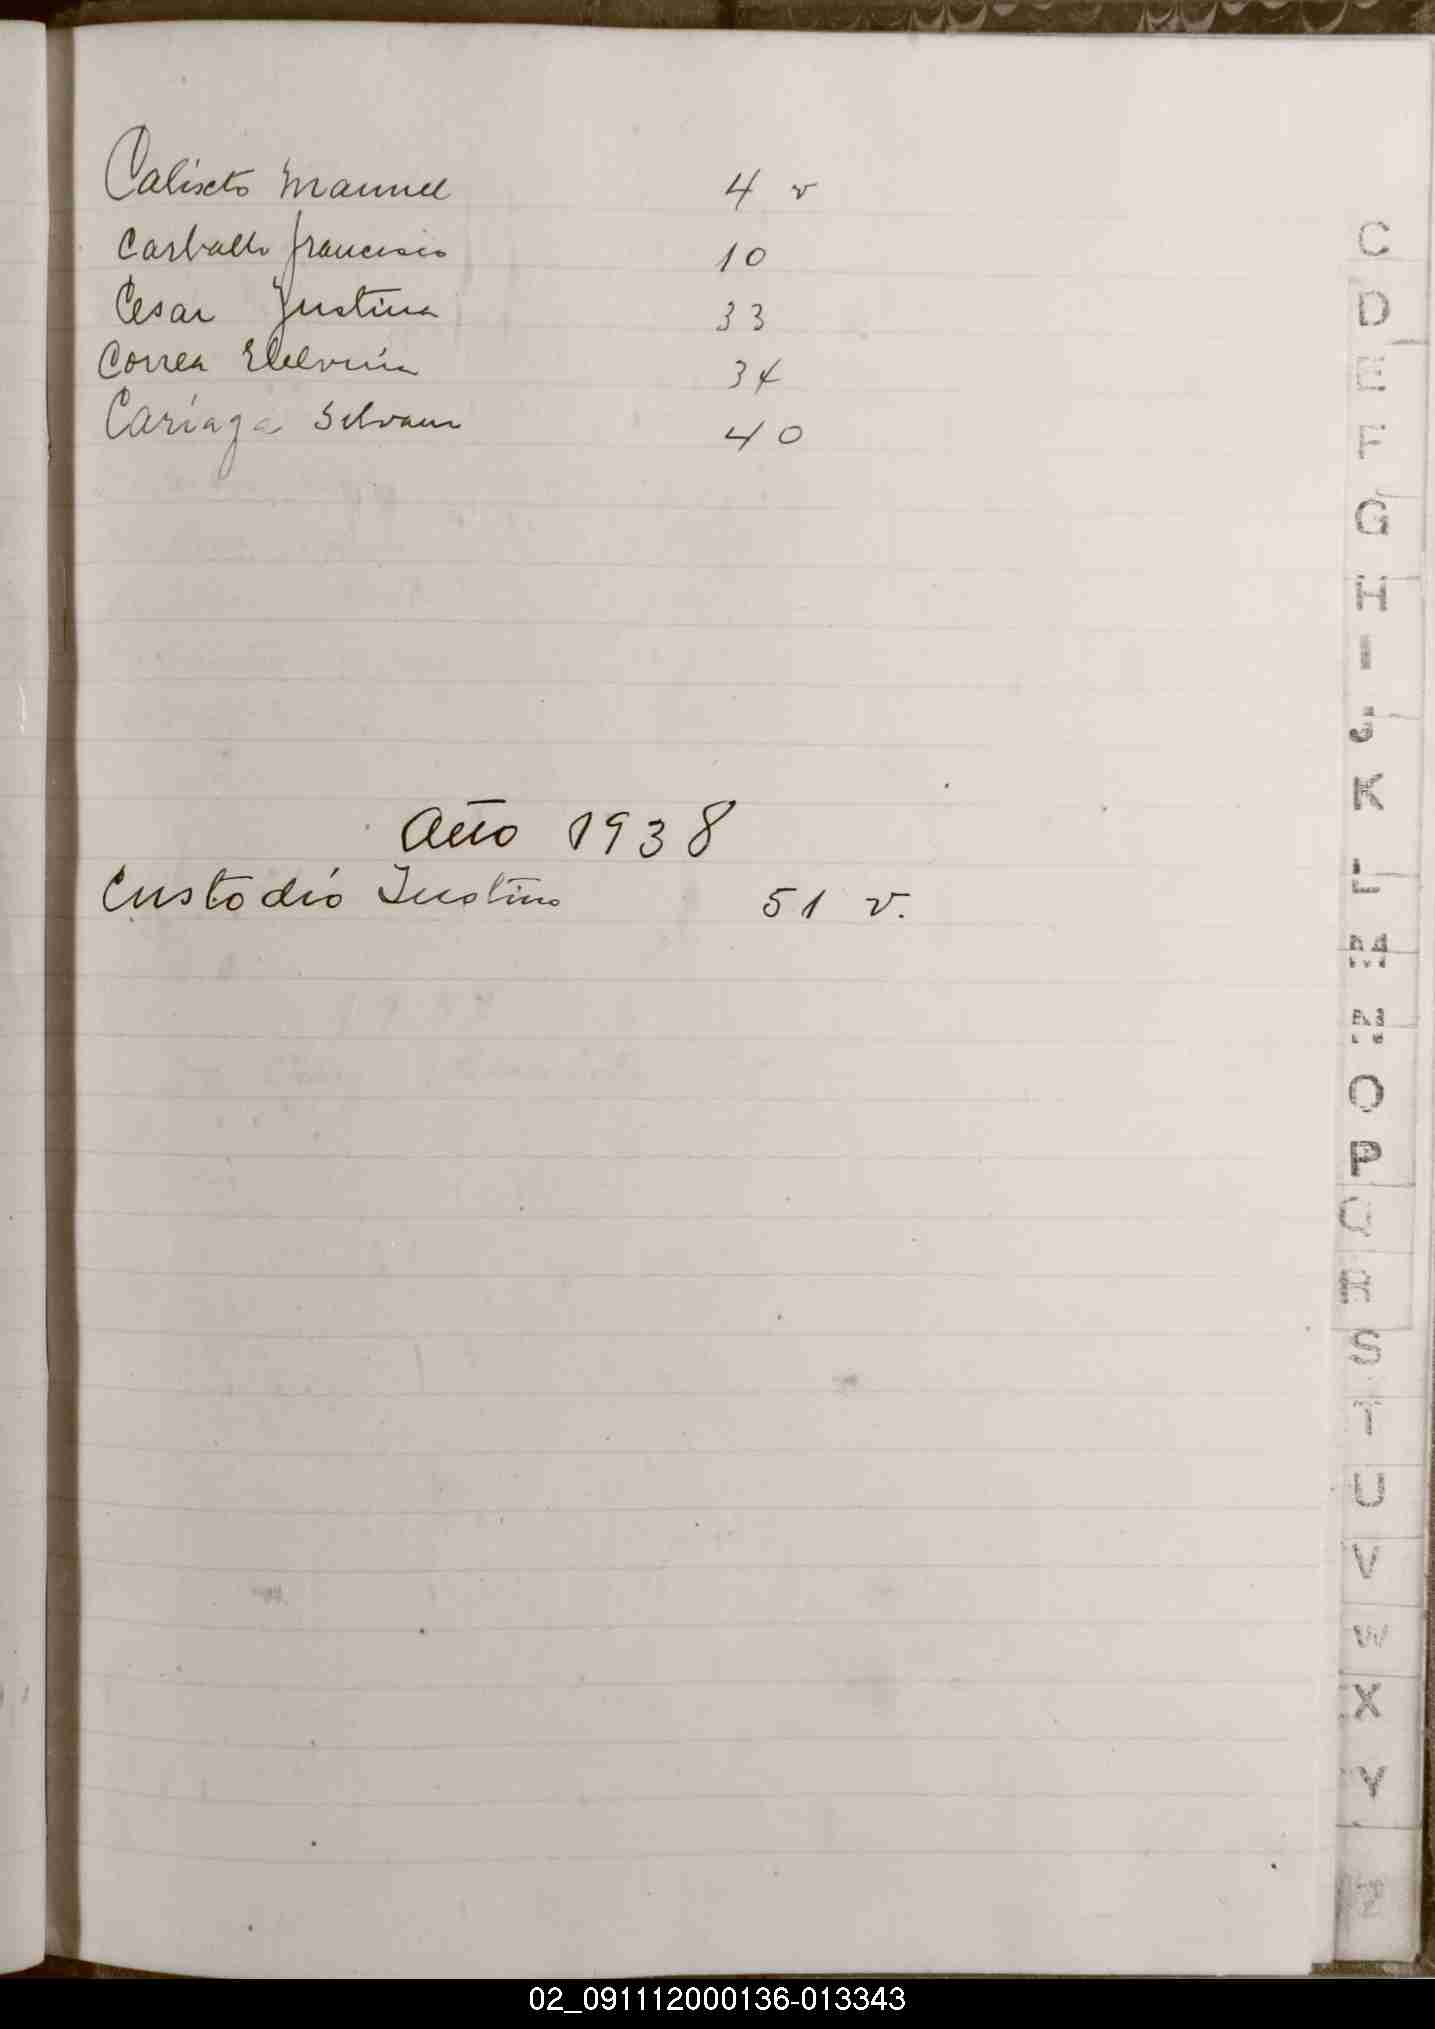 Calixto Manuel 4 v
Carballo Francisco 10
Cesar Justina 33
Correa Etelvina 34
Cariaga Silvano 40
Año 1938
Custodio Justino 51 v.
C
D
E
F
G
H
I
J
K
L
M
N
O
P
Q
R
S
T
U
V
W
X
Y
Z
02_091112000136-013343